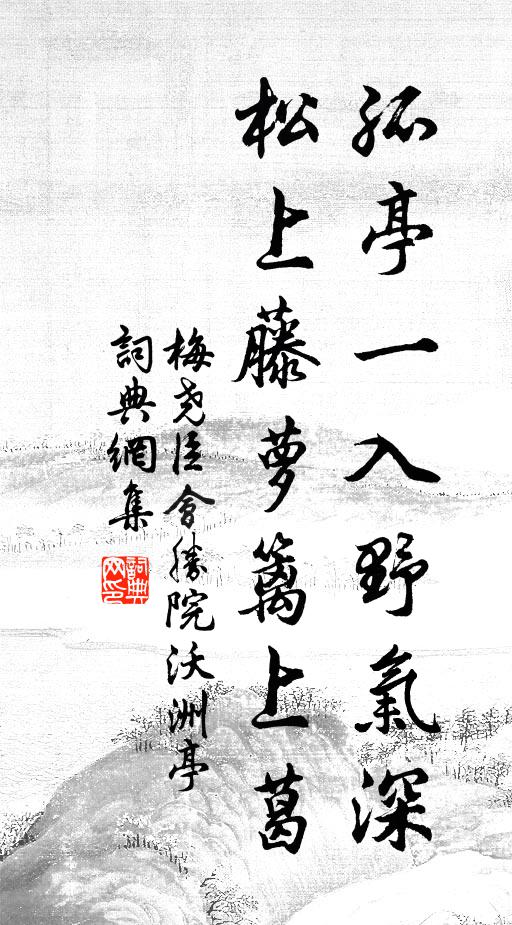 孤亭一入野氣深
松上藤夢篱上葛
梅堯臣會勝院沃洲亭
詞典網集
詞典網印